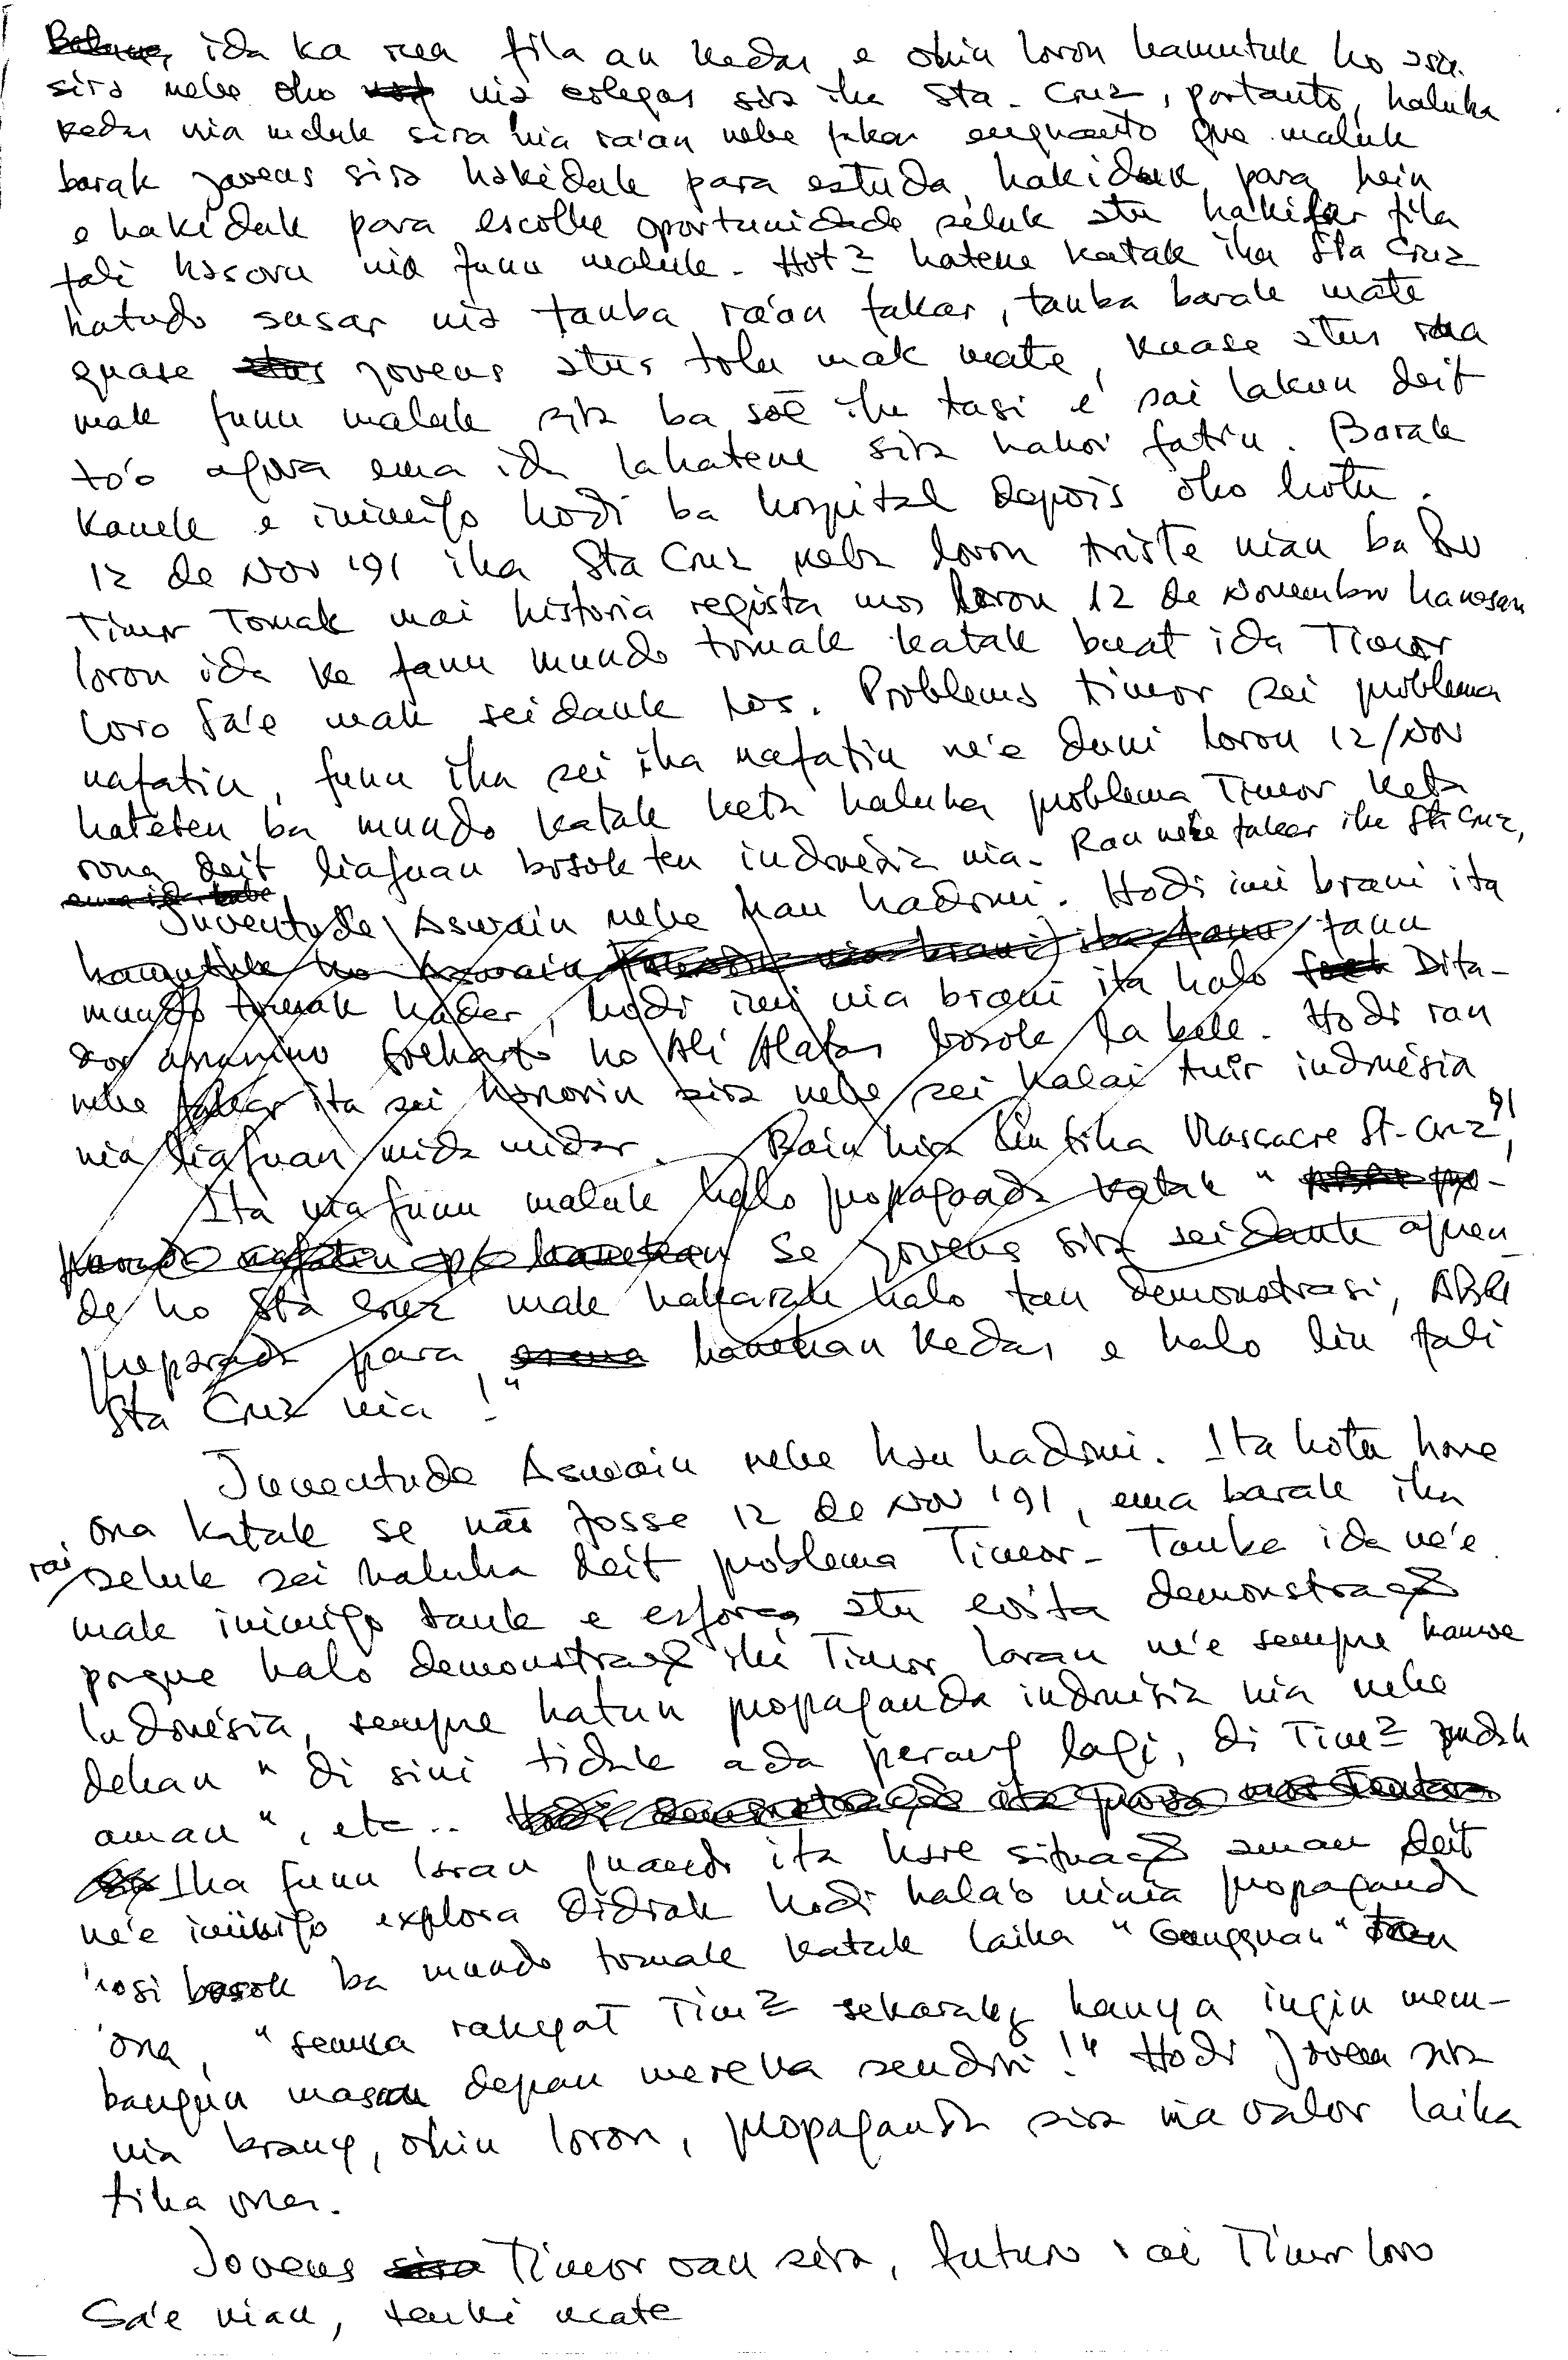 ida ka rua fila an kedas e ohin loron hamutuk ho asu
sira nebe oho nia colegas sira iha Sta. Cruz, portanto, haluha
kedas nia maluk sira nia ra'an nebe fakar enquanto que maluk
barak jovens sira hakiduk para estuda, hakiduk para hein
e hakiduk para escolhe oportunidade seluk atu hakifar fila
fali hasoru nia funu maluk. Hotu hatene katak iha Sta Cruz
hatudo susar nia tanba ra'an fakar, tanba barak mate
quase jovens atus tolu mak mate, kuase atus rua
mak funu maluk sira ba soē iha tasi e sai lakon deit
to'o agora ema ida lahatene sira nakoi fatin. Barak
kanek e inimigo hodi ba hospital depois oho hotu.
12 de Nov '91 iha Sta Cruz nebe loron triste nian ba Povu
Timor Tomak mai historia regista mos loron 12 de Novembro hanesan
loron ida ke fanu mundo tomak katak buat ida Timor
Loro Sa'e mak seidauk los. Problema timor sei problema
nafatin, funu iha sei iha nafatin ne'e duni loron 12/Nov
hateten ba mundo katak keta haluha problema Timor keta
rona deit liafuan bosok ten indonésia nia. Ran nebe fakar iha Sta Cruz,
Juventude Aswain nebe hau hadomi. Hodi imi brani ita
fanu
mundo tomak hader, hodi imi nia brani ita halo Dita-
dor assassino Soeharto ho Ali Alatas bosok la bele. Hodi ran
nebe fakar ita sei hanorin sira nebe sei halai tuir indonésia
nia liafuan mida midar. Bain hira liu tiha Massacre St-Cruz 91,
Ita nia funu maluk halo propaganda katak "
se jovens sira seidauk apren
de ho Sta Cruz mak hakarak halo tan demonstrasi, ABRI
preparado para hanehan kedas e halo liu fali
Sta Cruz nia !"
Juventude Aswain nebe hau hadomi. Ita hotu hare
ona katak se não fosse 12 de Nov '91, ema barak iha
rai seluk sei haluha deit problema Timor. Tanba ida ne'e
mak inimigo tauk e esforça atu evita demonstração
porque halo demonstração iha Timor laran ne'e sempre hanoe
Indonésia, sempre hatun propaganda indonésia nia nebe
dehan " di sini tidak ada perang lagi, di Timor sudah
aman ", etc..
Iha funu laran quando ita hare situação aman deit
ne'e inimigo explora didiak hodi hala'o ninia propaganda
nosi bosok ba mundo tomak katak laiha "Gangguan" tan
ona, "semua rakyat Timor sekarang hanya ingin mem-
bangun masa depan mereka sendiri !" Hodi Jovem sira
nia brany, ohin loron, propaganda sira nia valor laiha
tiha ona.
Jovens Timor oan sira, futuro rai Timor loro
Sa'e nian, tenki mate